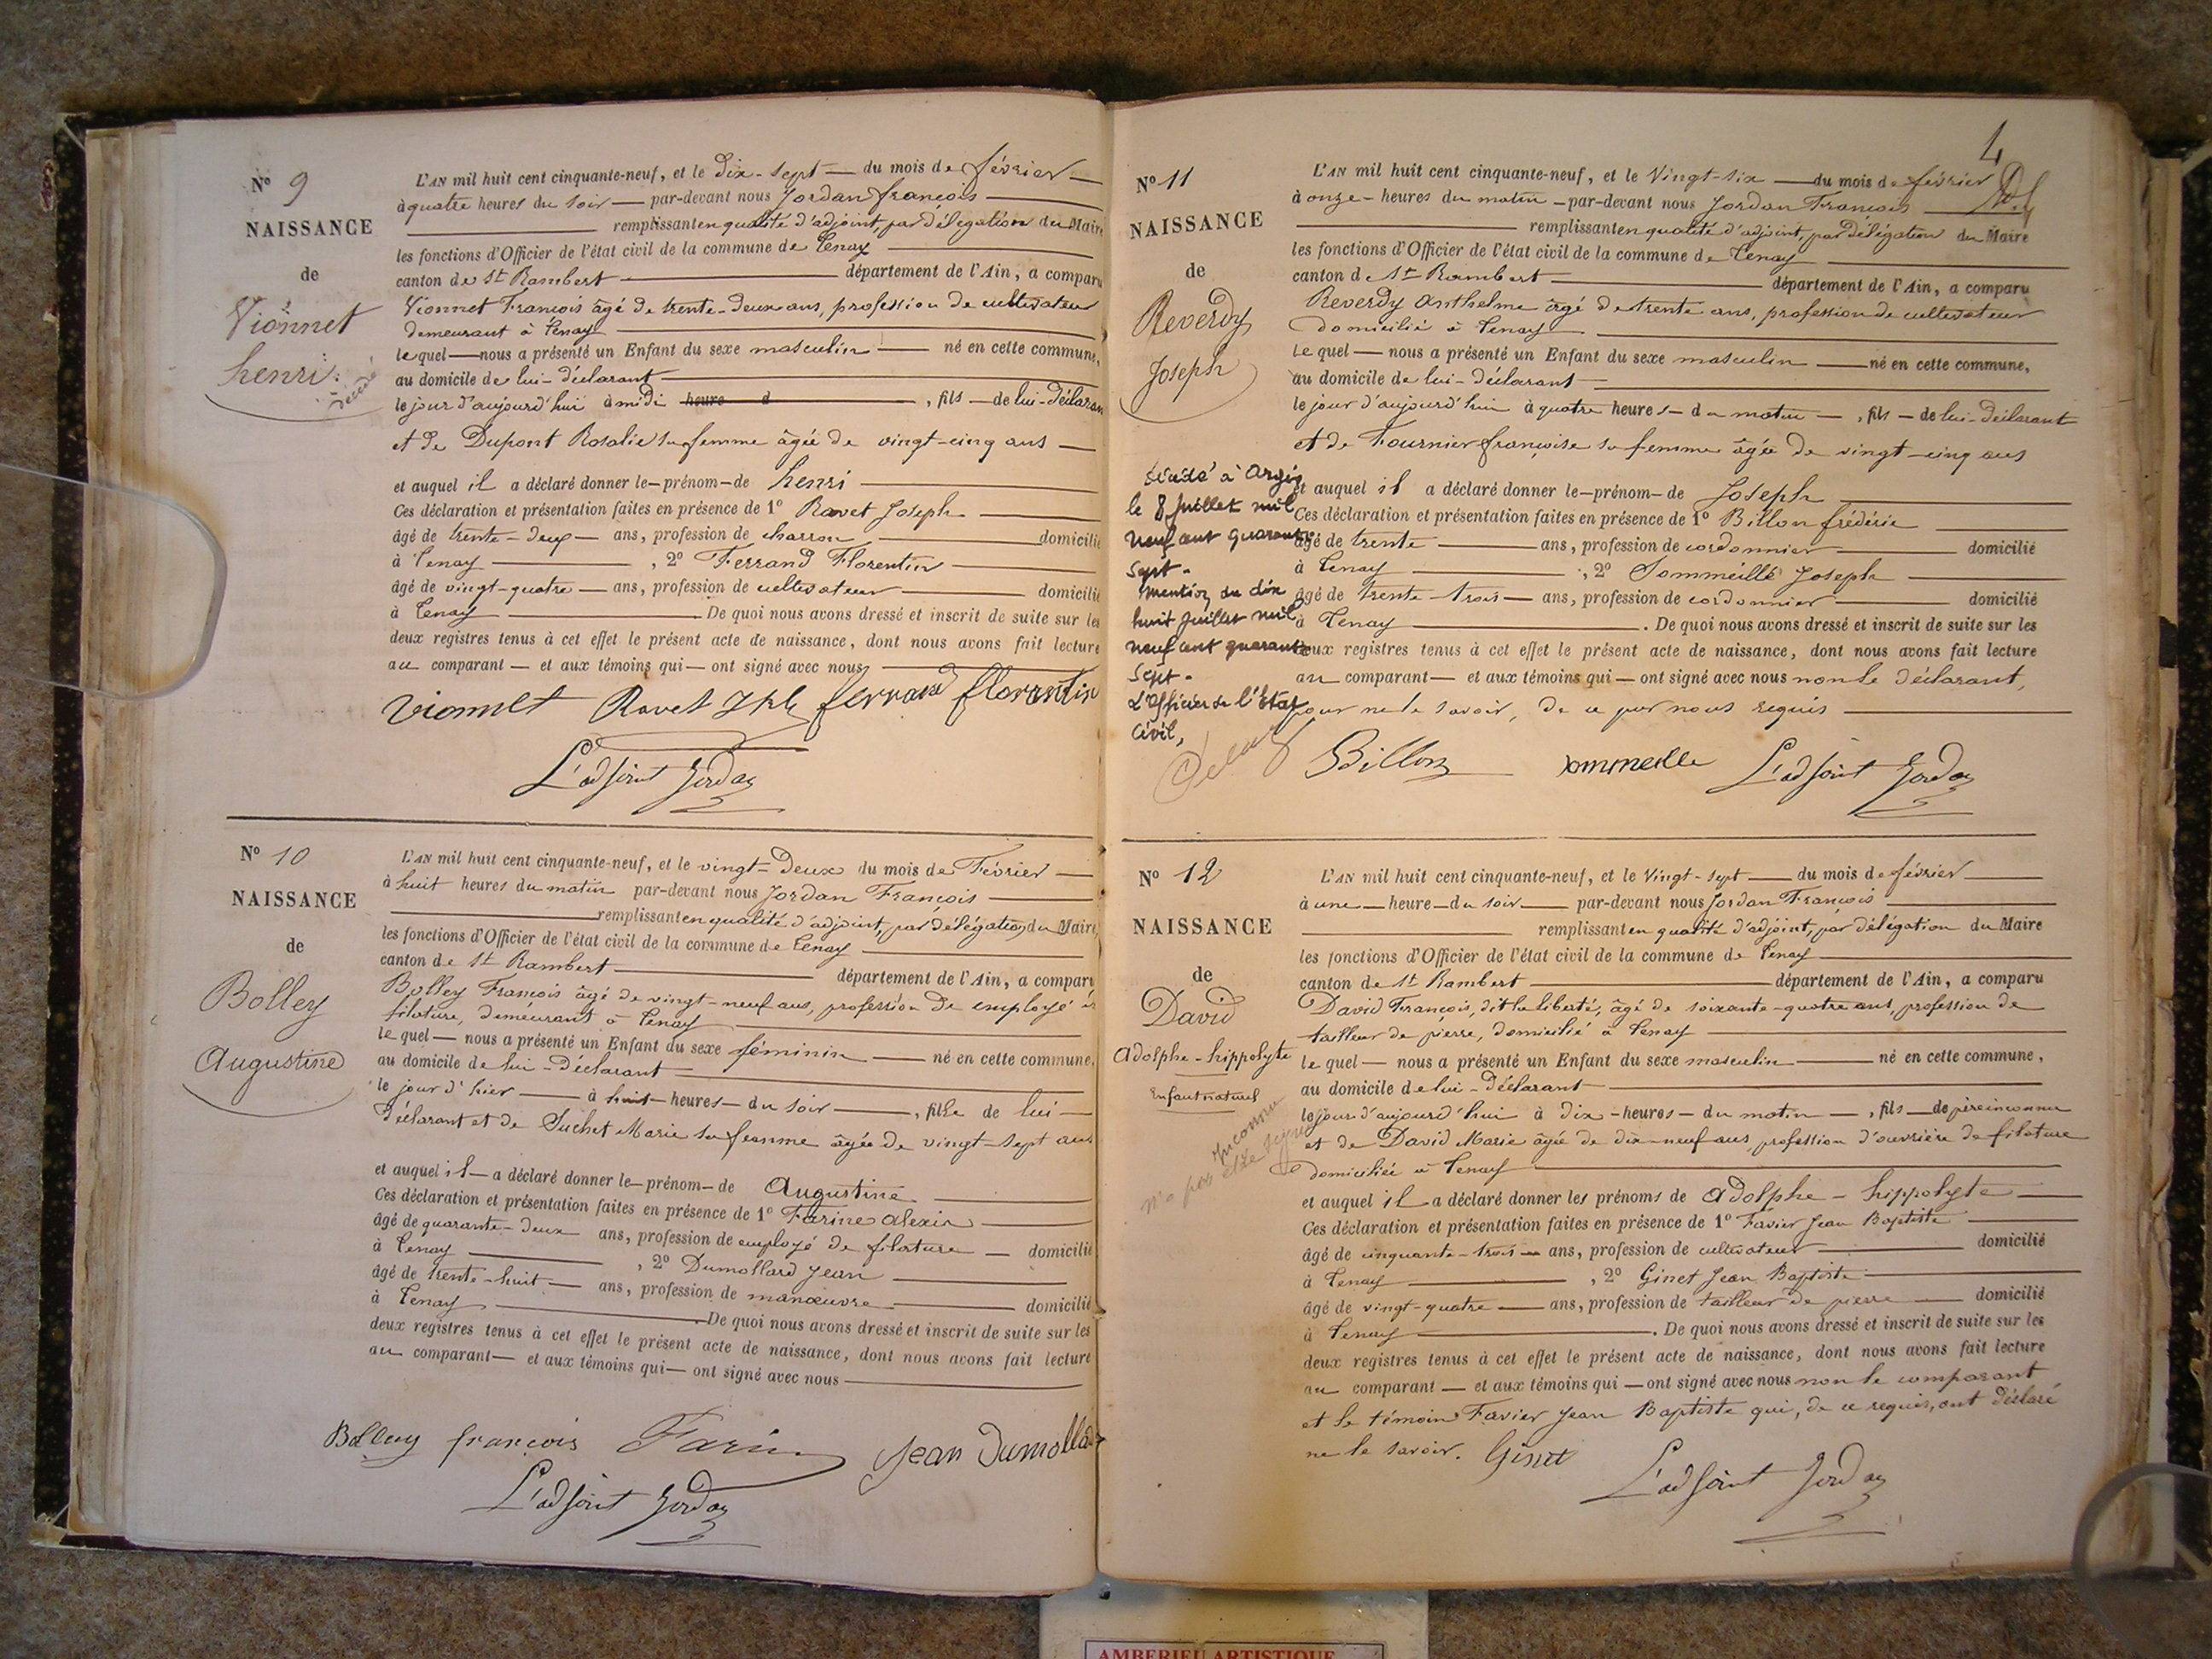 N° 9
NAISSANCE
de
Vionnet
henri
décédé
L'AN mil huit cent cinquante-neuf, et le Dix-Sept du mois de février
à quatre heures du soir par-devant nous Jordan françois
remplissant en qualité d'adjoint, par délégation du Maire
les fonctions d'Officier de l'état civil de la commune de Tenay
canton de St Rambert département de l'Ain, a comparu
Vionnet François âgé de trente-deux ans, profession de cultivateur
demeurant à Tenay
le quel nous a présenté un Enfant du sexe masculin né en cette commune,
au domicile de lui-déclarant
le jour d'aujourd'hui à midi heure d , fils de lui-déclarant
et de Dupont Rosalie sa femme âgée de vingt-cinq ans
et auquel il a déclaré donner le prénom de henri
Ces déclaration et présentation faites en présence de 1° Ravet Joseph
âgé de trente-deux ans, profession de charron domicilié
à Tenay , 2° Ferrand Florentin
âgé de vingt-quatre ans, profession de cultivateur domicilié
à Tenay . De quoi nous avons dressé et inscrit de suite sur les
deux registres tenus à cet effet le présent acte de naissance, dont nous avons fait lecture
au comparant et aux témoins qui ont signé avec nous
Vionnet Ravet Jph ferrand florantin
L'adjoint Jordan
N° 10
NAISSANCE
de
Bolley
Augustine
L'AN mil huit cent cinquante-neuf, et le vingt-Deux du mois de Février
à huit heures du matin par-devant nous Jordan François
remplissant en qualité d'adjoint, par délégation du Maire
les fonctions d'Officier de l'état civil de la commune de Tenay
canton de St Rambert département de l'Ain, a comparu
Bolley François âgé de vingt-neuf ans, profession de employé de
filature, demeurant à Tenay
le quel nous a présenté un Enfant du sexe féminin né en cette commune,
au domicile de lui-Déclarant
le jour d'hier à huit heures du soir , fille de lui
Déclarant et de Suchet Marie sa femme âgée de vingt-sept ans
et auquel il a déclaré donner le prénom de Augustine
Ces déclaration et présentation faites en présence de 1° Farine alexis
âgé de quarante-deux ans, profession de employé de filature domicilié
à Tenay , 2° Dumollard Jean
âgé de trente-huit ans, profession de manœuvre domicilié
à Tenay . De quoi nous avons dressé et inscrit de suite sur les
deux registres tenus à cet effet le présent acte de naissance, dont nous avons fait lecture
au comparant et aux témoins qui ont signé avec nous
Bolley françois Farine Jean Dumollard
L'adjoint Jordan
4
N° 11
NAISSANCE
de
Reverdy
Joseph
L'AN mil huit cent cinquante-neuf, et le Vingt-six du mois de février
à onze heures du matin par-devant nous Jordan François
remplissant en qualité d'adjoint, par délégation du Maire
les fonctions d'Officier de l'état civil de la commune de Tenay
canton de St Rambert département de l'Ain, a comparu
Reverdy Anthelme âgé de trente ans, profession de cultivateur
domicilié à Tenay
le quel nous a présenté un Enfant du sexe masculin né en cette commune,
au domicile de lui-déclarant
le jour d'aujourd'hui à quatre heures du matin , fils de lui-déclarant
et de Fournier françoise sa femme âgée de vingt-cinq ans
et auquel il a déclaré donner le prénom de Joseph
Ces déclaration et présentation faites en présence de 1° Billon frédéric
âgé de trente ans, profession de cordonnier domicilié
à Tenay , 2° Sommeillé Joseph
âgé de trente-trois ans, profession de cordonnier domicilié
à Tenay . De quoi nous avons dressé et inscrit de suite sur les
deux registres tenus à cet effet le présent acte de naissance, dont nous avons fait lecture
au comparant et aux témoins qui ont signé avec nous non le déclarant,
pour ne le savoir, de ce par nous requis
Billon sommeille L'adjoint Jordan
Décédé à Argis
le 8 Juillet mil
neuf cent quarante
sept.
mention du dix
huit Juillet mil
neuf cent quarante
sept.
L'Officier de l'État
Civil,
N° 12
NAISSANCE
de
David
Adolphe-hippolyte
Enfant naturel
inconnu
n'a pas été signé
L'AN mil huit cent cinquante-neuf, et le Vingt-sept du mois de février
à une heure du soir par-devant nous Jordan François
remplissant en qualité d'adjoint, par délégation du Maire
les fonctions d'Officier de l'état civil de la commune de Tenay
canton de St Rambert département de l'Ain, a comparu
David François, dit la liberté, âgé de soixante-quatre ans, profession de
tailleur de pierre, domicilié à Tenay
le quel nous a présenté un Enfant du sexe masculin né en cette commune,
au domicile de lui-déclarant
le jour d'aujourd'hui à dix heures du matin , fils de père inconnu
et de David Marie âgée de dix-neuf ans, profession d'ouvrière de filature
Domiciliée à Tenay
et auquel il a déclaré donner les prénoms de Adolphe-hippolyte
Ces déclaration et présentation faites en présence de 1° Favier Jean Baptiste
âgé de cinquante-trois ans, profession de cultivateur domicilié
à Tenay , 2° Ginet Jean Baptiste
âgé de vingt-quatre ans, profession de tailleur de pierre domicilié
à Tenay . De quoi nous avons dressé et inscrit de suite sur les
deux registres tenus à cet effet le présent acte de naissance, dont nous avons fait lecture
au comparant et aux témoins qui ont signé avec nous non le comparant
et le témoin Favier Jean Baptiste qui, de ce requis, ont déclaré
ne le savoir. Ginet
L'adjoint Jordan
AMBERIEU ARTISTIQUE